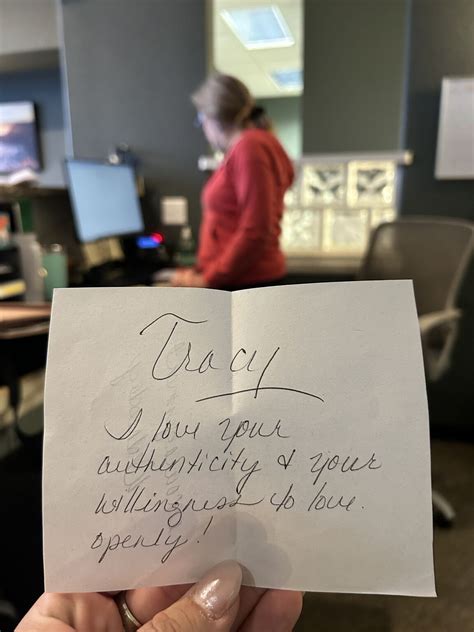 Tracy
I love your
authenticity & your
willingness to love
openly!